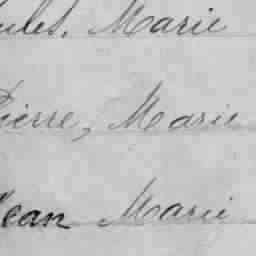 Jules, Marie
Pierre, Marie
Jean Marie